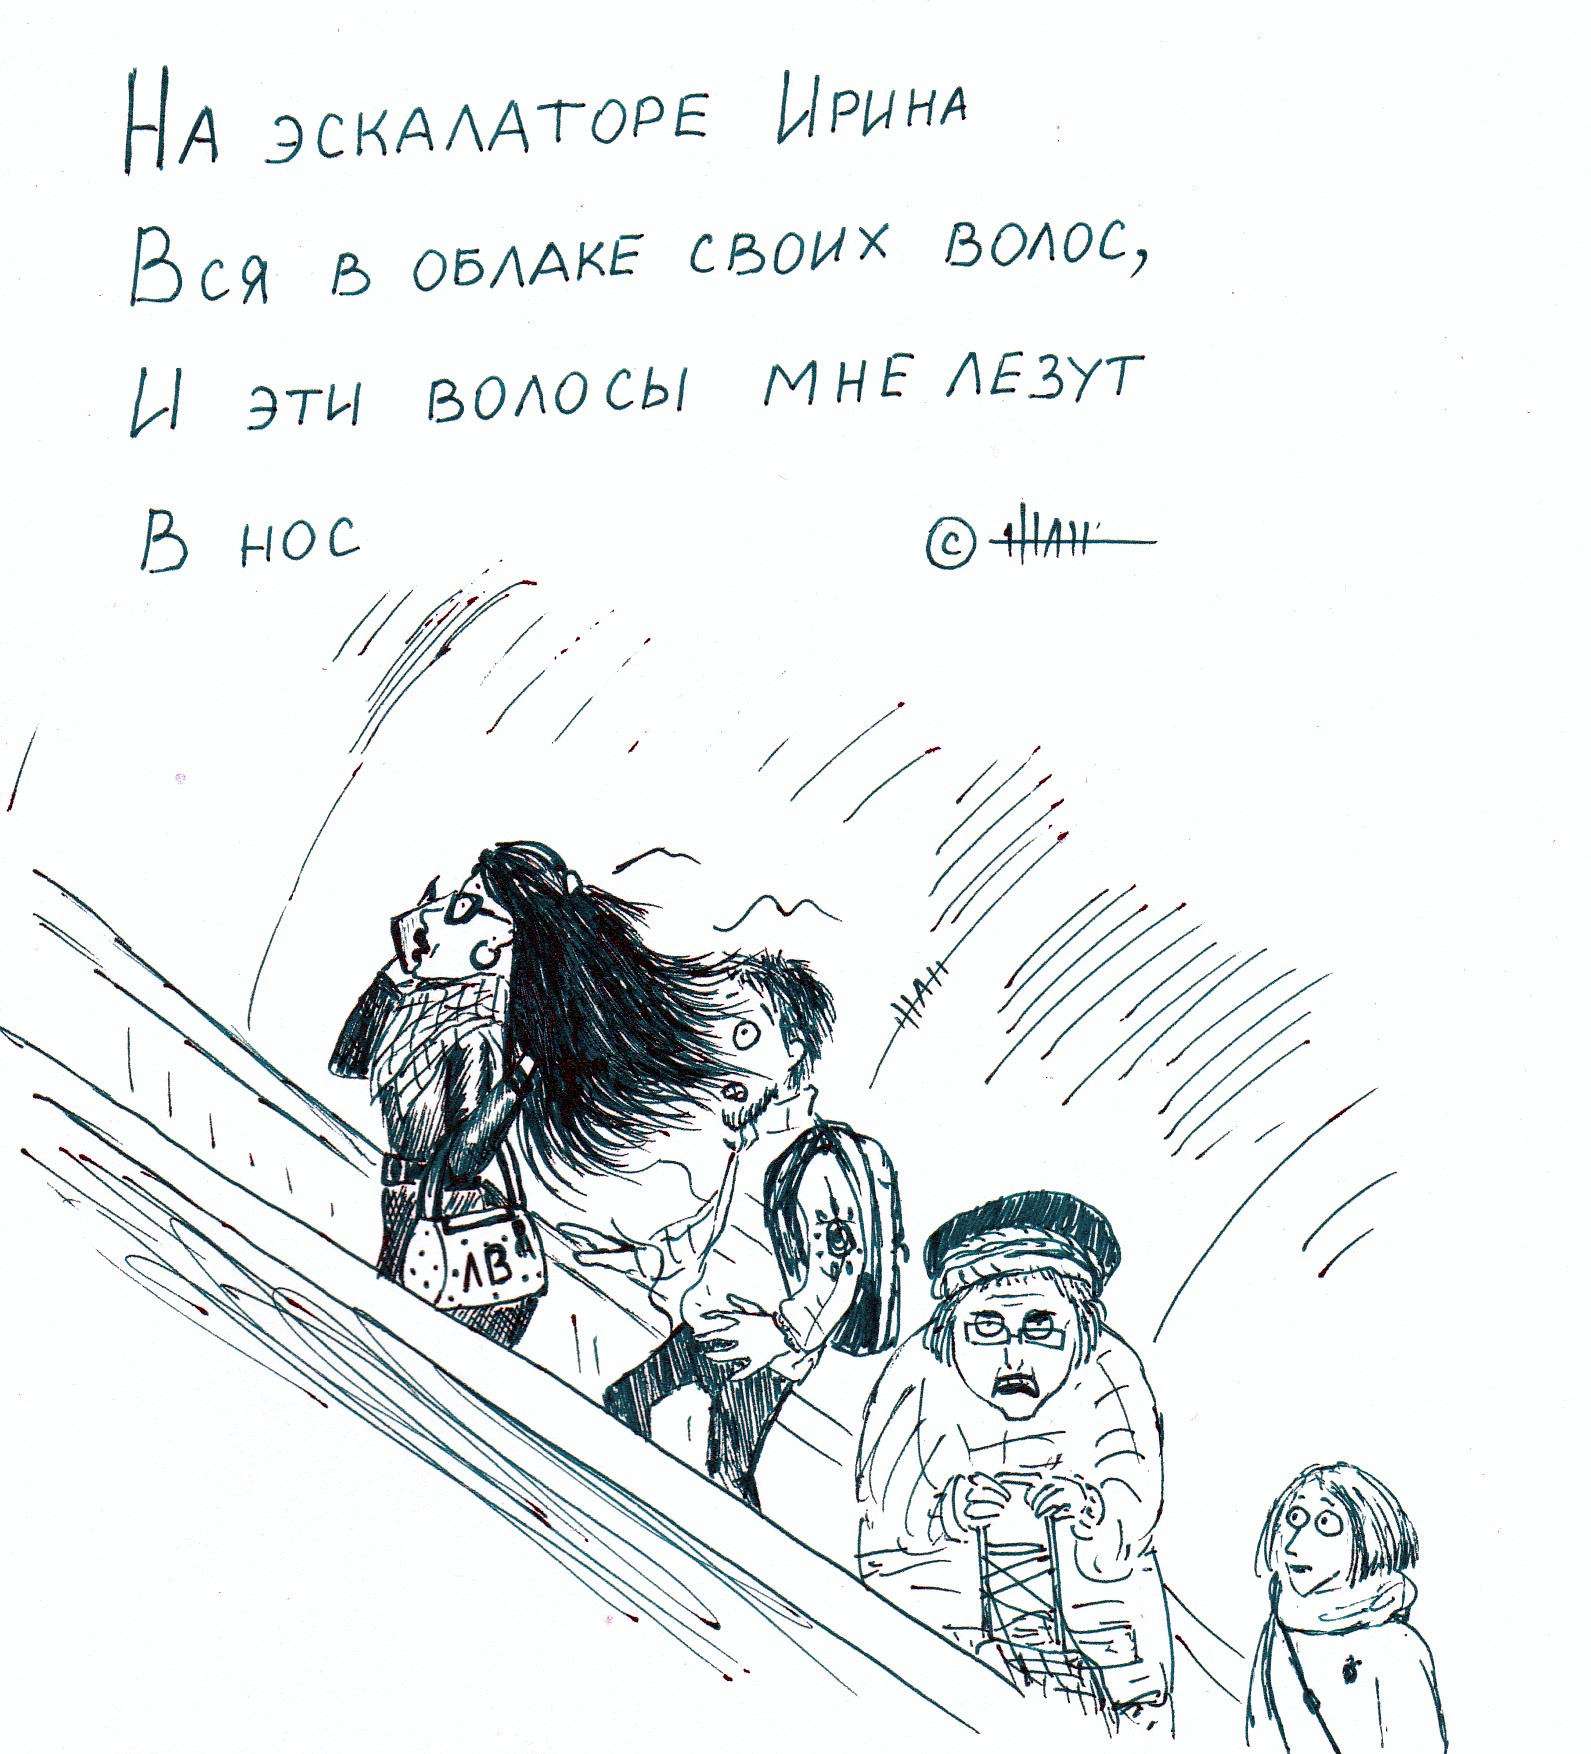 На эскалаторе Ирина
Вся в облаке своих волос,
И эти волосы мне лезут
В нос
© ШАН
ШАН
ЛВ